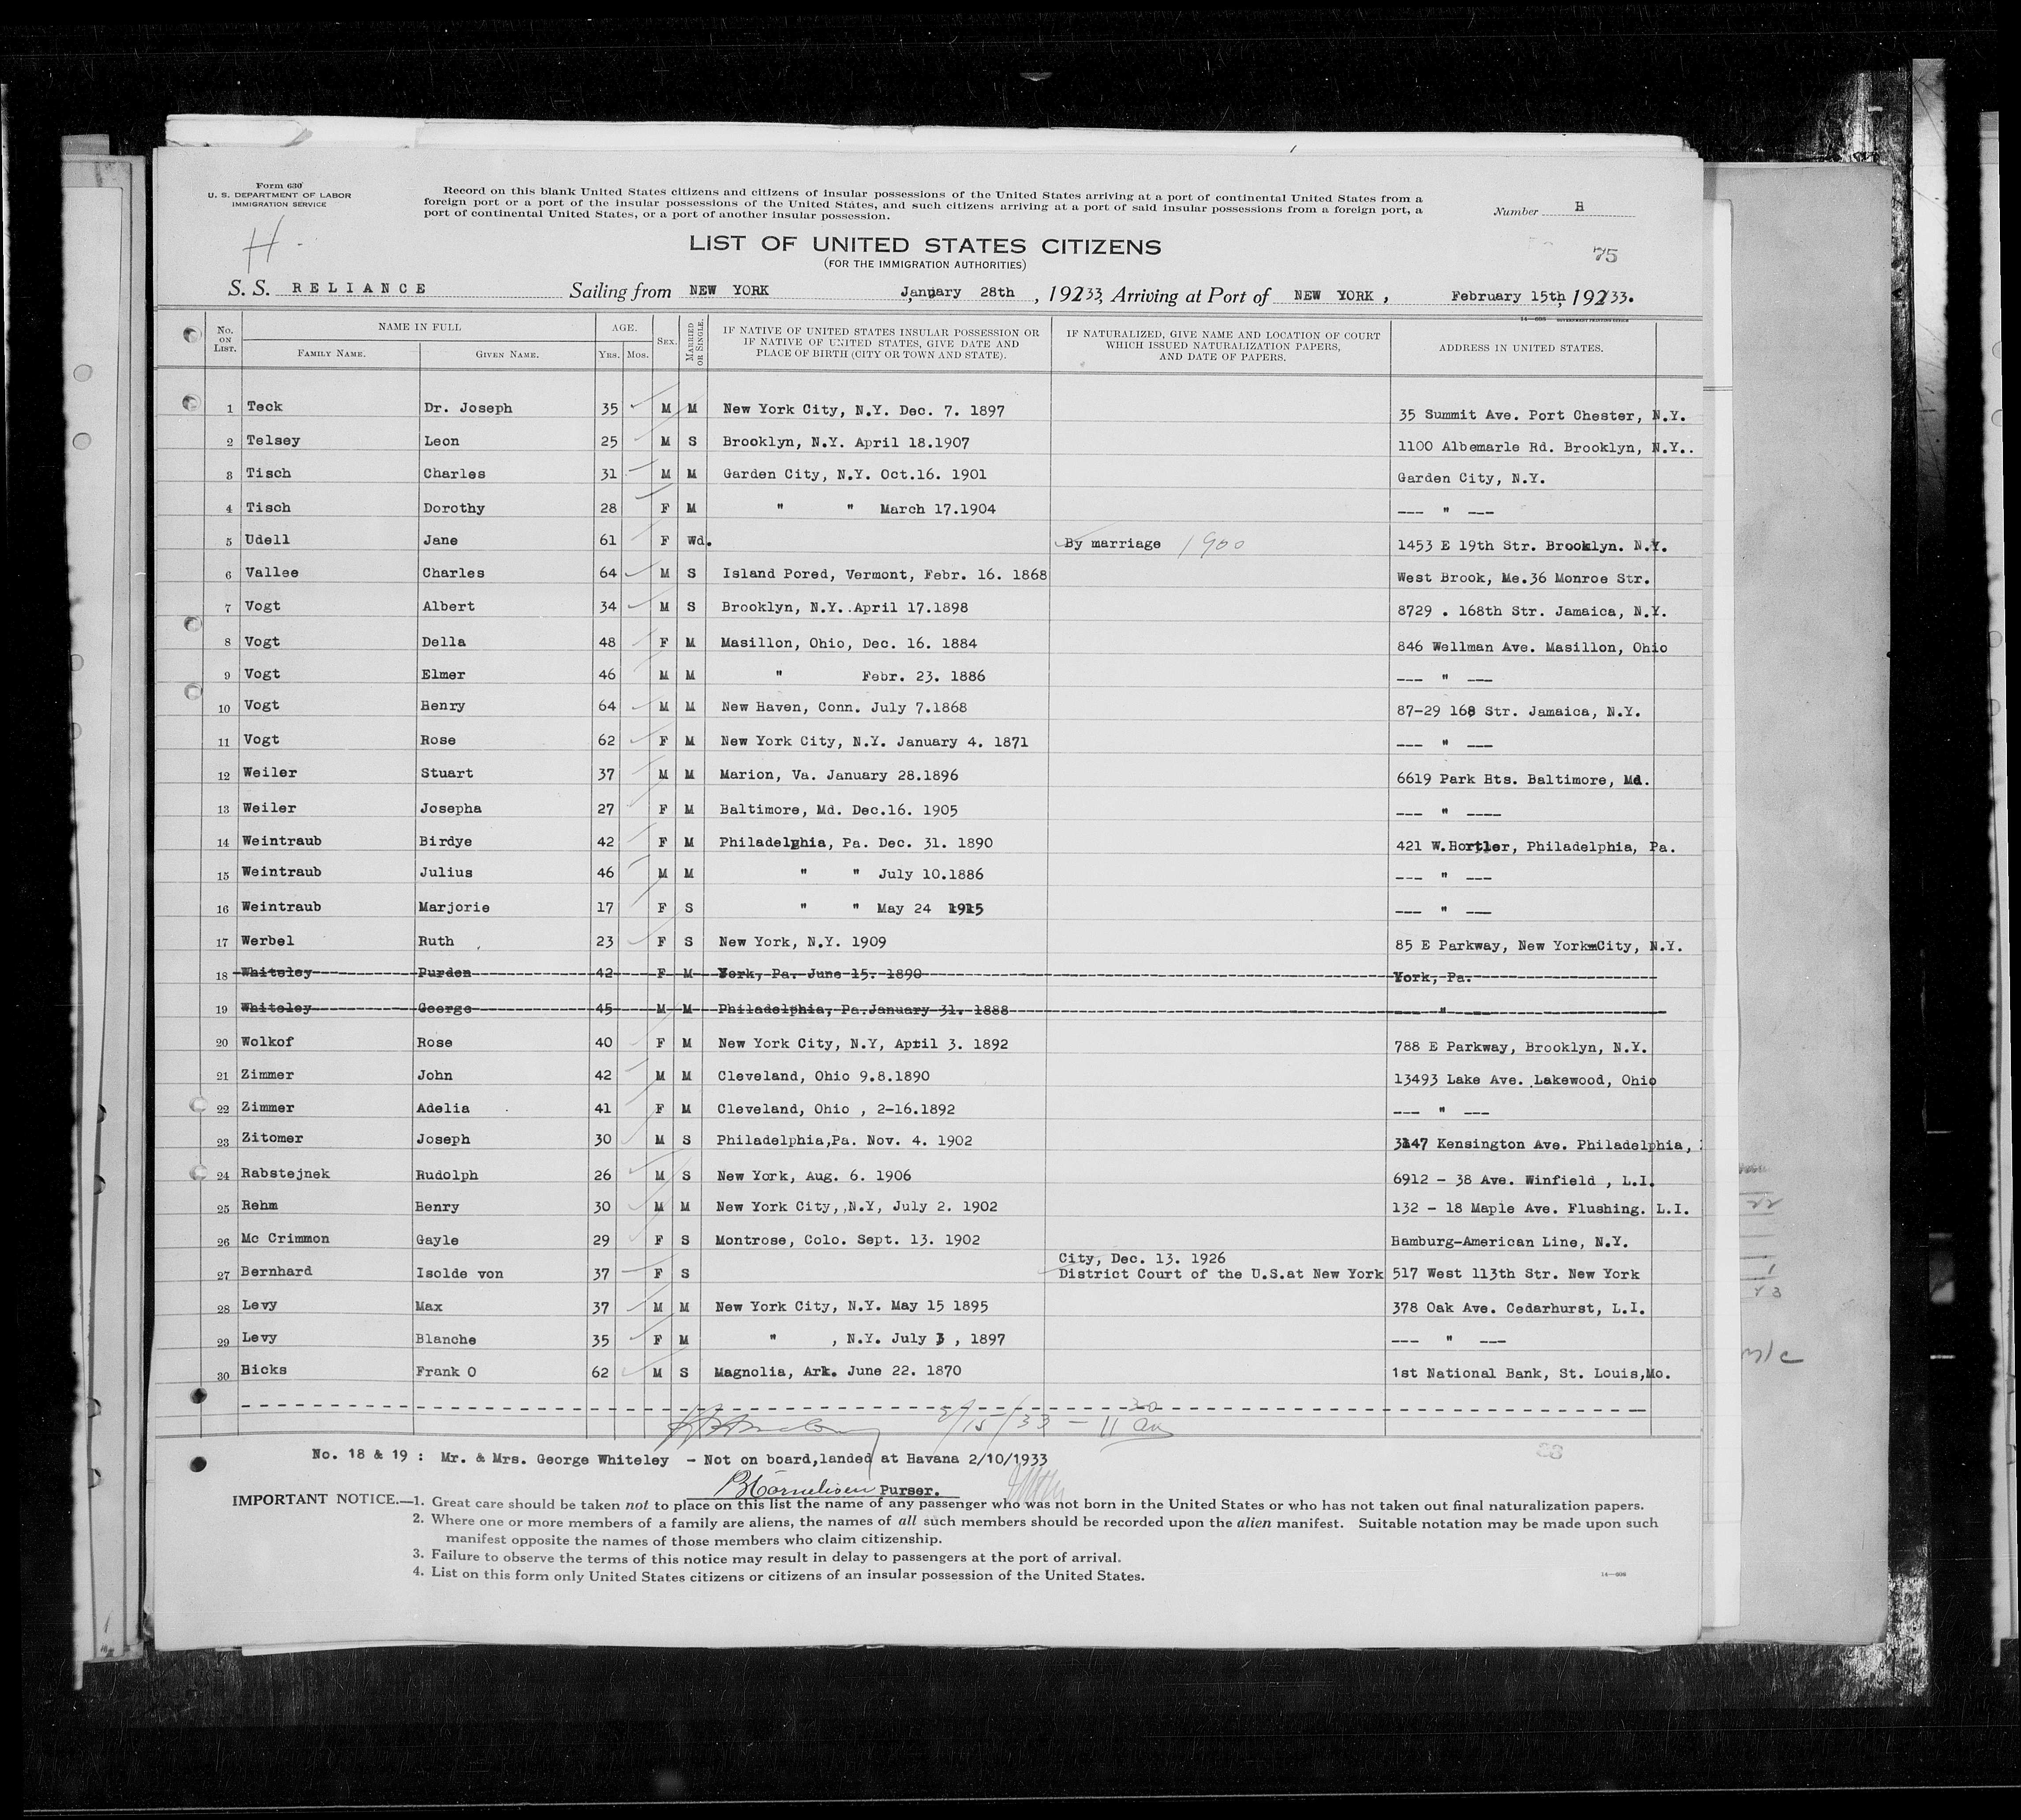 Form 630
U. S. DEPARTMENT OF LABOR
IMMIGRATION SERVICE
Record on this blank United States citizens and citizens of insular possessions of the United States arriving at a port of continental United States from a
foreign port or a port of the insular possessions of the United States, and such citizens arriving at a port of said insular possessions from a foreign port, a
port of continental United States, or a port of another insular possession.
Number H
H
LIST OF UNITED STATES CITIZENS
(FOR THE IMMIGRATION AUTHORITIES)
75
S. S. RELIANCE Sailing from NEW YORK January 28th, 19233, Arriving at Port of NEW YORK, February 15th, 19233.
14—608 GOVERNMENT PRINTING OFFICE
No. ON LIST. NAME IN FULL FAMILY NAME. GIVEN NAME. AGE. YRS. MOS. SEX. MARRIED OR SINGLE. IF NATIVE OF UNITED STATES INSULAR POSSESSION OR IF NATIVE OF UNITED STATES, GIVE DATE AND PLACE OF BIRTH (CITY OR TOWN AND STATE). IF NATURALIZED, GIVE NAME AND LOCATION OF COURT WHICH ISSUED NATURALIZATION PAPERS, AND DATE OF PAPERS. ADDRESS IN UNITED STATES.
1 Teck Dr. Joseph 35 M M New York City, N.Y. Dec. 7. 1897 35 Summit Ave. Port Chester, N.Y.
2 Telsey Leon 25 M S Brooklyn, N.Y. April 18.1907 1100 Albemarle Rd. Brooklyn, N.Y..
3 Tisch Charles 31 M M Garden City, N.Y. Oct.16. 1901 Garden City, N.Y.
4 Tisch Dorothy 28 F M " " March 17.1904 --- " ---
5 Udell Jane 61 F Wd. By marriage 1900 1453 E 19th Str. Brooklyn. N.Y.
6 Vallee Charles 64 M S Island Pored, Vermont, Febr. 16. 1868 West Brook, Me.36 Monroe Str.
7 Vogt Albert 34 M S Brooklyn, N.Y. April 17.1898 8729 . 168th Str. Jamaica, N.Y.
8 Vogt Della 48 F M Masillon, Ohio, Dec. 16. 1884 846 Wellman Ave. Masillon, Ohio
9 Vogt Elmer 46 M M " Febr. 23. 1886 --- " ---
10 Vogt Henry 64 M M New Haven, Conn. July 7.1868 87-29 168 Str. Jamaica, N.Y.
11 Vogt Rose 62 F M New York City, N.Y. January 4. 1871 --- " ---
12 Weiler Stuart 37 M M Marion, Va. January 28.1896 6619 Park Hts. Baltimore, Md.
13 Weiler Josepha 27 F M Baltimore, Md. Dec.16. 1905 --- " ----
14 Weintraub Birdye 42 F M Philadelphia, Pa. Dec. 31. 1890 421 W.Hortler, Philadelphia, Pa.
15 Weintraub Julius 46 M M " " July 10.1886 --- " ---
16 Weintraub Marjorie 17 F S " " May 24 1915 --- " ---
17 Werbel Ruth 23 F S New York, N.Y. 1909 85 E Parkway, New York City, N.Y.
18 Whiteley Purden 42 F M York, Pa. June 15. 1890 York, Pa.
19 Whiteley George 45 M M Philadelphia, Pa.January 31. 1888 "
20 Wolkof Rose 40 F M New York City, N.Y, April 3. 1892 788 E Parkway, Brooklyn, N.Y.
21 Zimmer John 42 M M Cleveland, Ohio 9.8.1890 13493 Lake Ave. Lakewood, Ohio
22 Zimmer Adelia 41 F M Cleveland, Ohio , 2-16.1892 --- " ---
23 Zitomer Joseph 30 M S Philadelphia,Pa. Nov. 4. 1902 3147 Kensington Ave. Philadelphia,
24 Rabstejnek Rudolph 26 M S New York, Aug. 6. 1906 6912 - 38 Ave. Winfield , L.I.
25 Rehm Henry 30 M M New York City, N.Y, July 2. 1902 132 - 18 Maple Ave. Flushing. L.I.
26 Mc Crimmon Gayle 29 F S Montrose, Colo. Sept. 13. 1902 Hamburg-American Line, N.Y.
City, Dec. 13. 1926
27 Bernhard Isolde von 37 F S District Court of the U.S.at New York 517 West 113th Str. New York
28 Levy Max 37 M M New York City, N.Y. May 15 1895 378 Oak Ave. Cedarhurst, L.I.
29 Levy Blanche 35 F M " , N.Y. July 3 , 1897 --- " ---
30 Hicks Frank O 62 M S Magnolia, Ark. June 22. 1870 1st National Bank, St. Louis,Mo.
2/15/33 - 11 30 am
No. 18 & 19 : Mr. & Mrs. George Whiteley - Not on board,landed at Havana 2/10/1933
28
Purser.
IMPORTANT NOTICE.—1. Great care should be taken not to place on this list the name of any passenger who was not born in the United States or who has not taken out final naturalization papers.
2. Where one or more members of a family are aliens, the names of all such members should be recorded upon the alien manifest. Suitable notation may be made upon such
manifest opposite the names of those members who claim citizenship.
3. Failure to observe the terms of this notice may result in delay to passengers at the port of arrival.
4. List on this form only United States citizens or citizens of an insular possession of the United States.
14—608